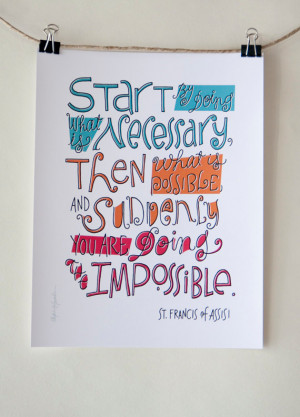 START By Doing
what is Necessary,
THEN what is POSSIBLE,
AND SUDDENLY
YOU ARE Doing
the IMPOSSIBLE.
ST. FRANCIS of ASSISI